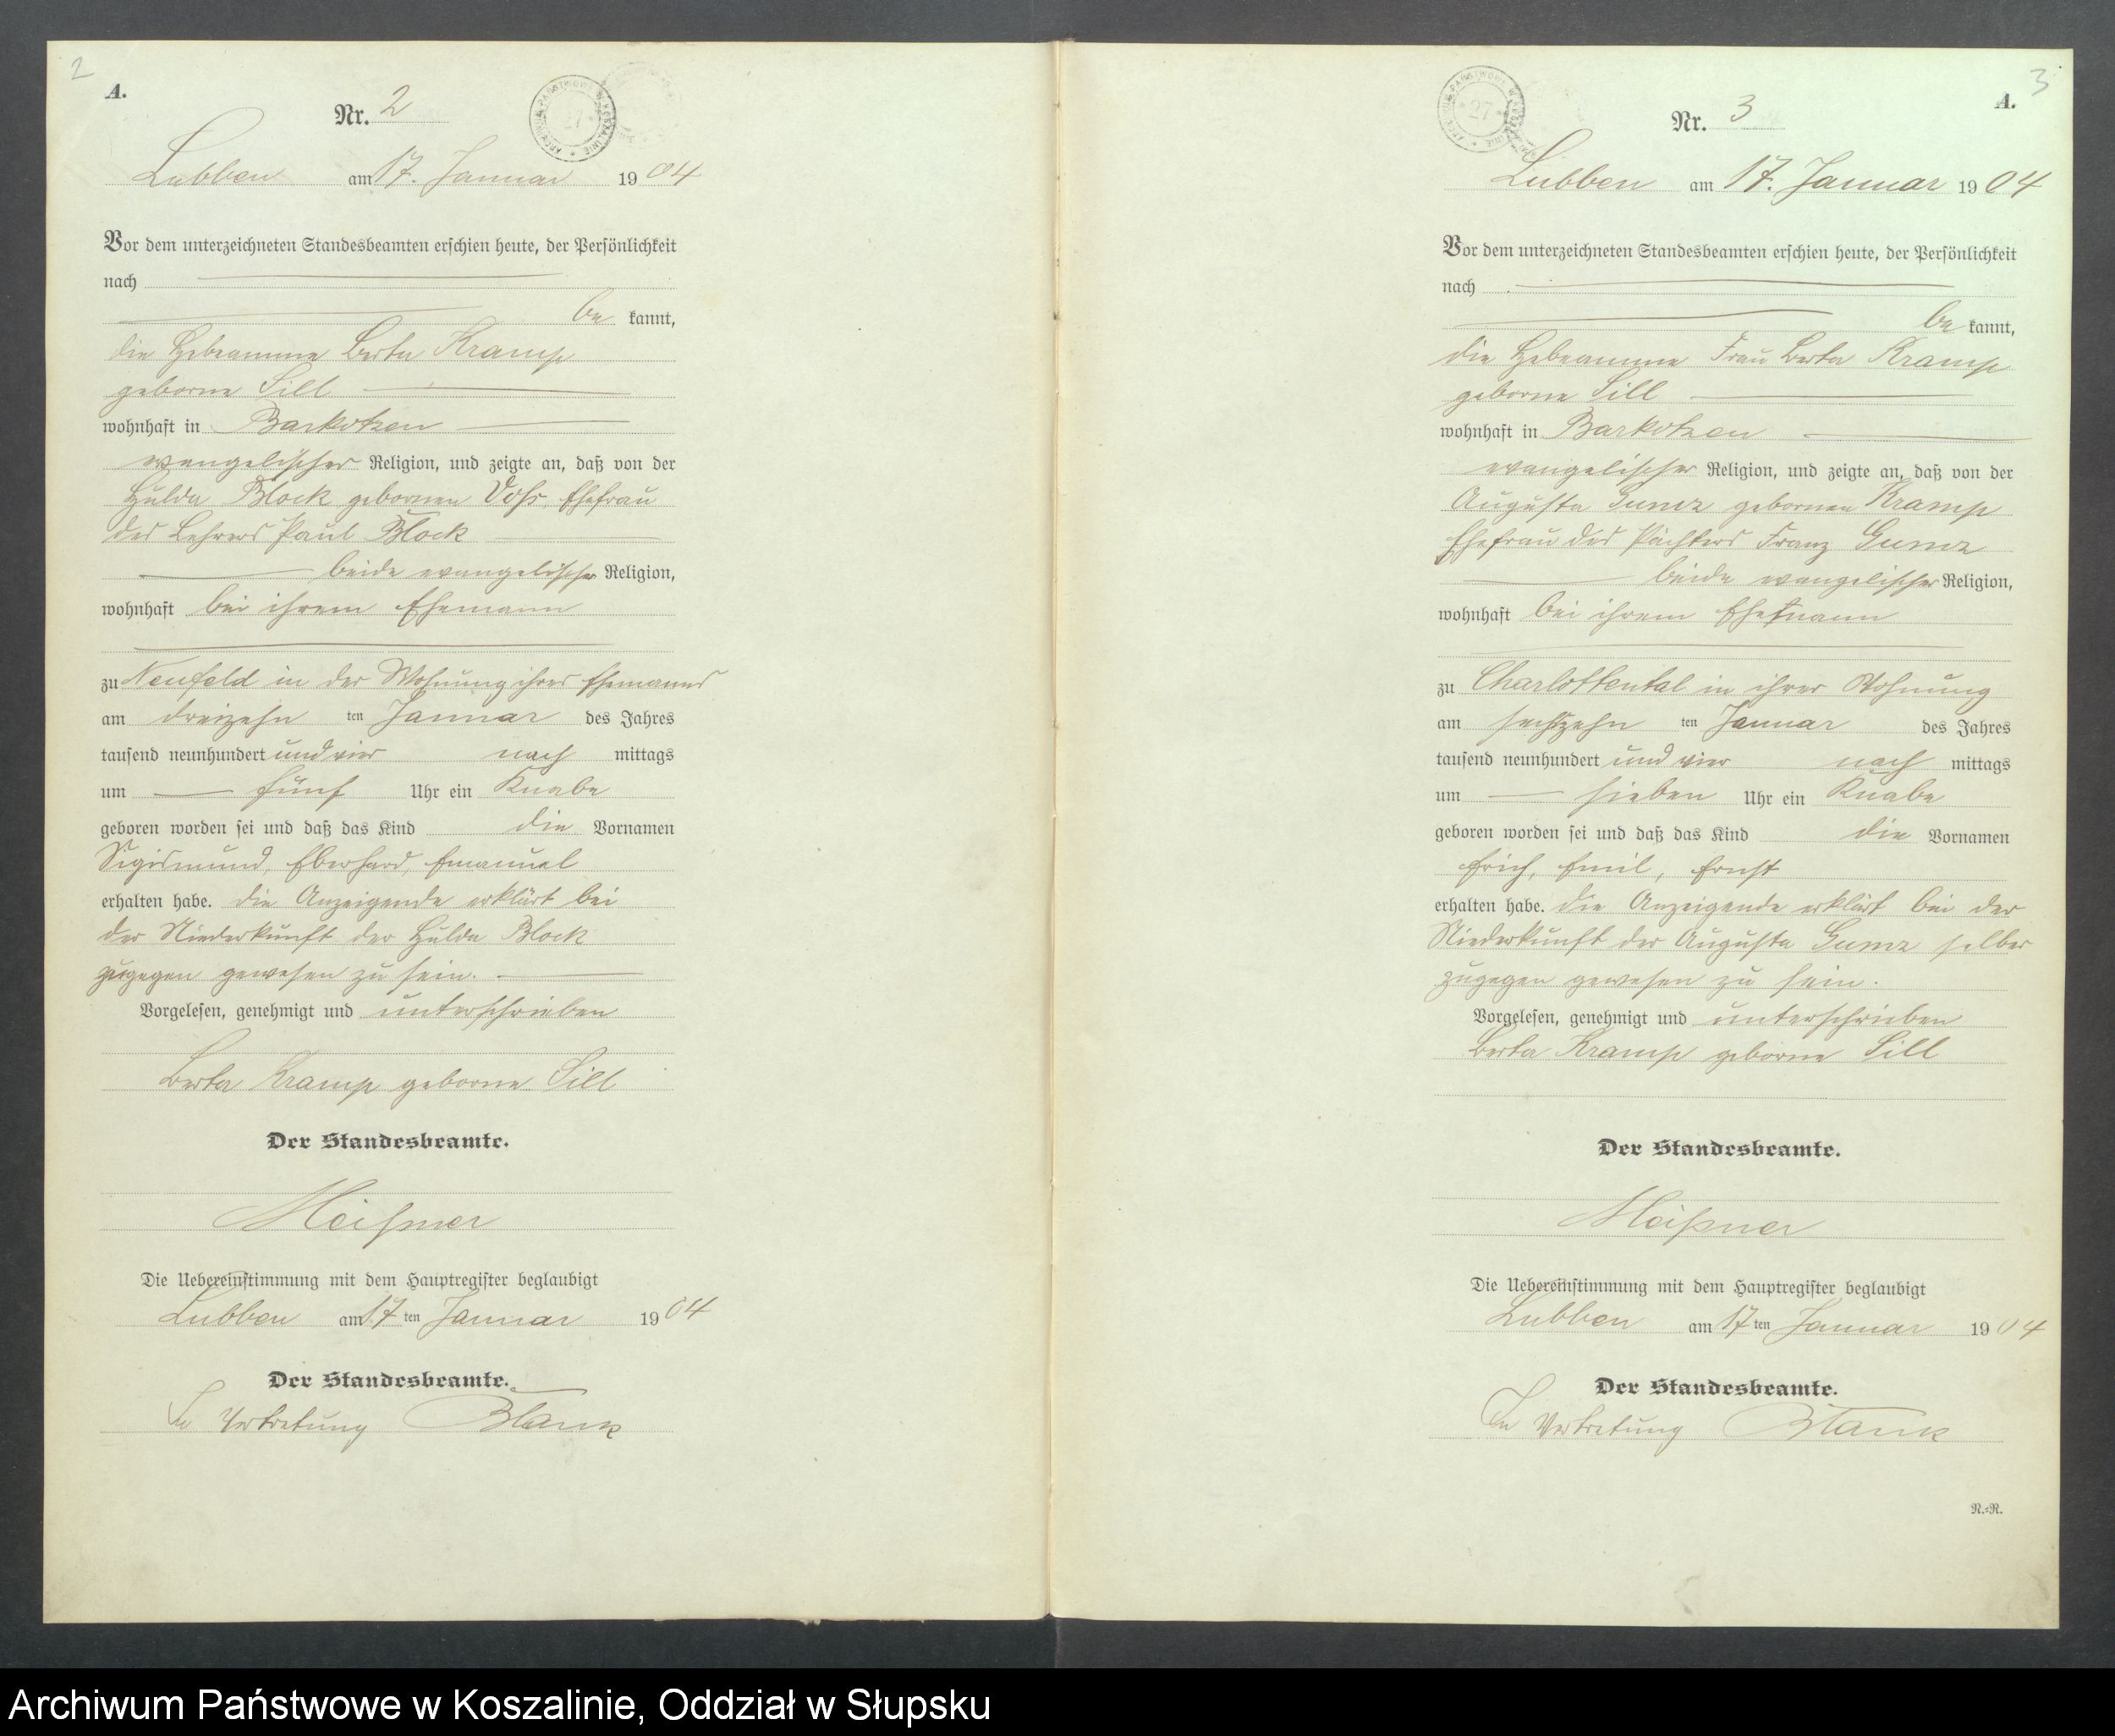 2
A.
Nr. 2
Lubben am 17. Januar 1904
Vor dem unterzeichneten Standesbeamten erschien heute, der Persönlichkeit
nach
be kannt,
die Hebeamme Berta Kramp
geborne Sill
wohnhaft in Barkotzen
evangelischer Religion, und zeigte an, daß von der
Hulda Block gebornen Voß, Ehefrau
des Lehrers Paul Block
beide evangelischer Religion,
wohnhaft bei ihrem Ehemann
zu Neufeld in der Wohnung ihres Ehemannes
am dreizehn ten Januar des Jahres
tausend neunhundert und vier nach mittags
um fünf Uhr ein Knabe
geboren worden sei und daß das Kind die Vornamen
Sigismund, Eberhard, Emanuel
erhalten habe. die Anzeigende erklärt bei
der Niederkunft der Hulda Block
zugegen gewesen zu sein.
Vorgelesen, genehmigt und unterschrieben
Berta Kramp geborne Sill
Der Standesbeamte.
Meißner
Die Uebereinstimmung mit dem Hauptregister beglaubigt
Lubben am 17 ten Januar 1904
Der Standesbeamte.
In Vertretung Blank
3
A.
Nr. 3
Lubben am 17. Januar 1904
Vor dem unterzeichneten Standesbeamten erschien heute, der Persönlichkeit
nach
be kannt,
die Hebeamme Frau Berta Kramp
geborne Sill
wohnhaft in Barkotzen
evangelischer Religion, und zeigte an, daß von der
Augusta Gumz gebornen Kramp
Ehefrau des Pächters Franz Gumz
beide evangelischer Religion,
wohnhaft bei ihrem Ehemann
zu Charlottental in ihrer Wohnung
am sechszehn ten Januar des Jahres
tausend neunhundert und vier nach mittags
um sieben Uhr ein Knabe
geboren worden sei und daß das Kind die Vornamen
Erich, Emil, Ernst
erhalten habe. die Anzeigende erklärt bei der
Niederkunft der Augusta Gumz selber
zugegen gewesen zu sein.
Vorgelesen, genehmigt und unterschrieben
Berta Kramp geborne Sill
Der Standesbeamte.
Meißner
Die Uebereinstimmung mit dem Hauptregister beglaubigt
Lubben am 17 ten Januar 1904
Der Standesbeamte.
In Vertretung Blank
R.=R.
Archiwum Państwowe w Koszalinie, Oddział w Słupsku